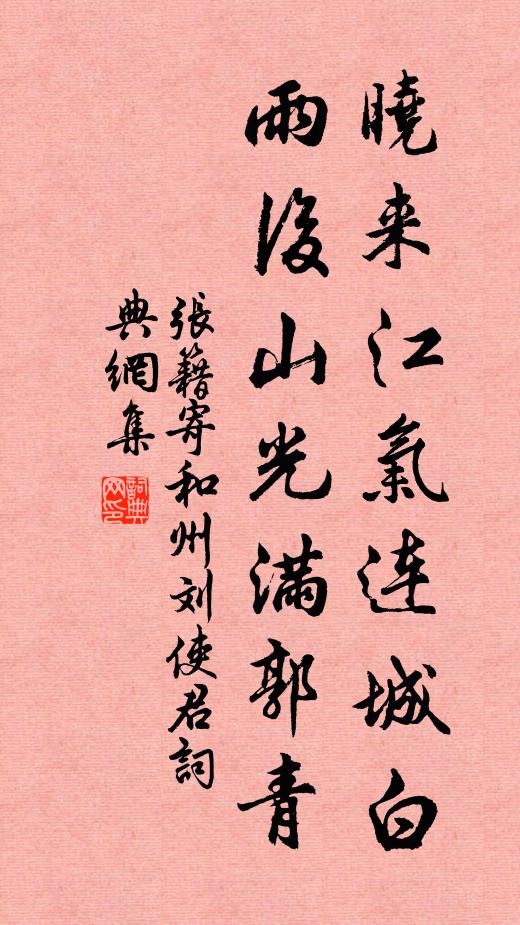 曉来江氣連城白
雨後山光滿郭青
張籍寄和州刘使君詞
典網集
詞典
网印